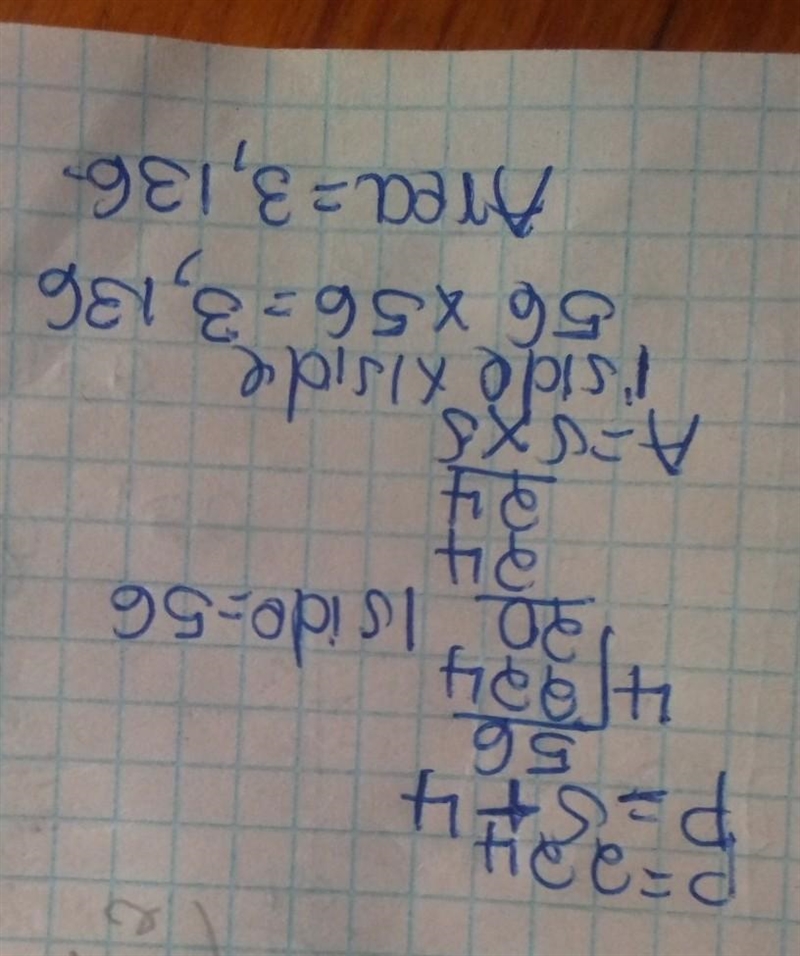 P=224
P=S+4
56
4 224
20 1side=56
24
24
A=S×S
1side ×1side
56 ×56=3,136
Area=3,136